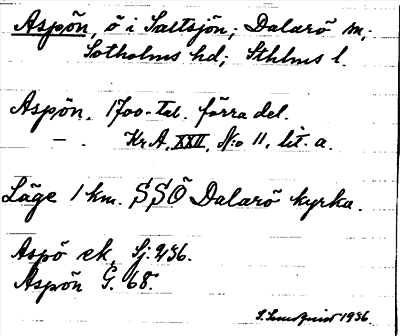 Aspön, ö i Saltsjön; Dalarö sn;
Sotholms hd; Sthlms l.
Aspön. 1700-tal. förra del.
— . Kr.A. XXII, N:o 11, lit. a.
Läge 1 km. SSÖ Dalarö kyrka.
Aspö ek. Sj. 236.
Aspön G. 68.
1936.